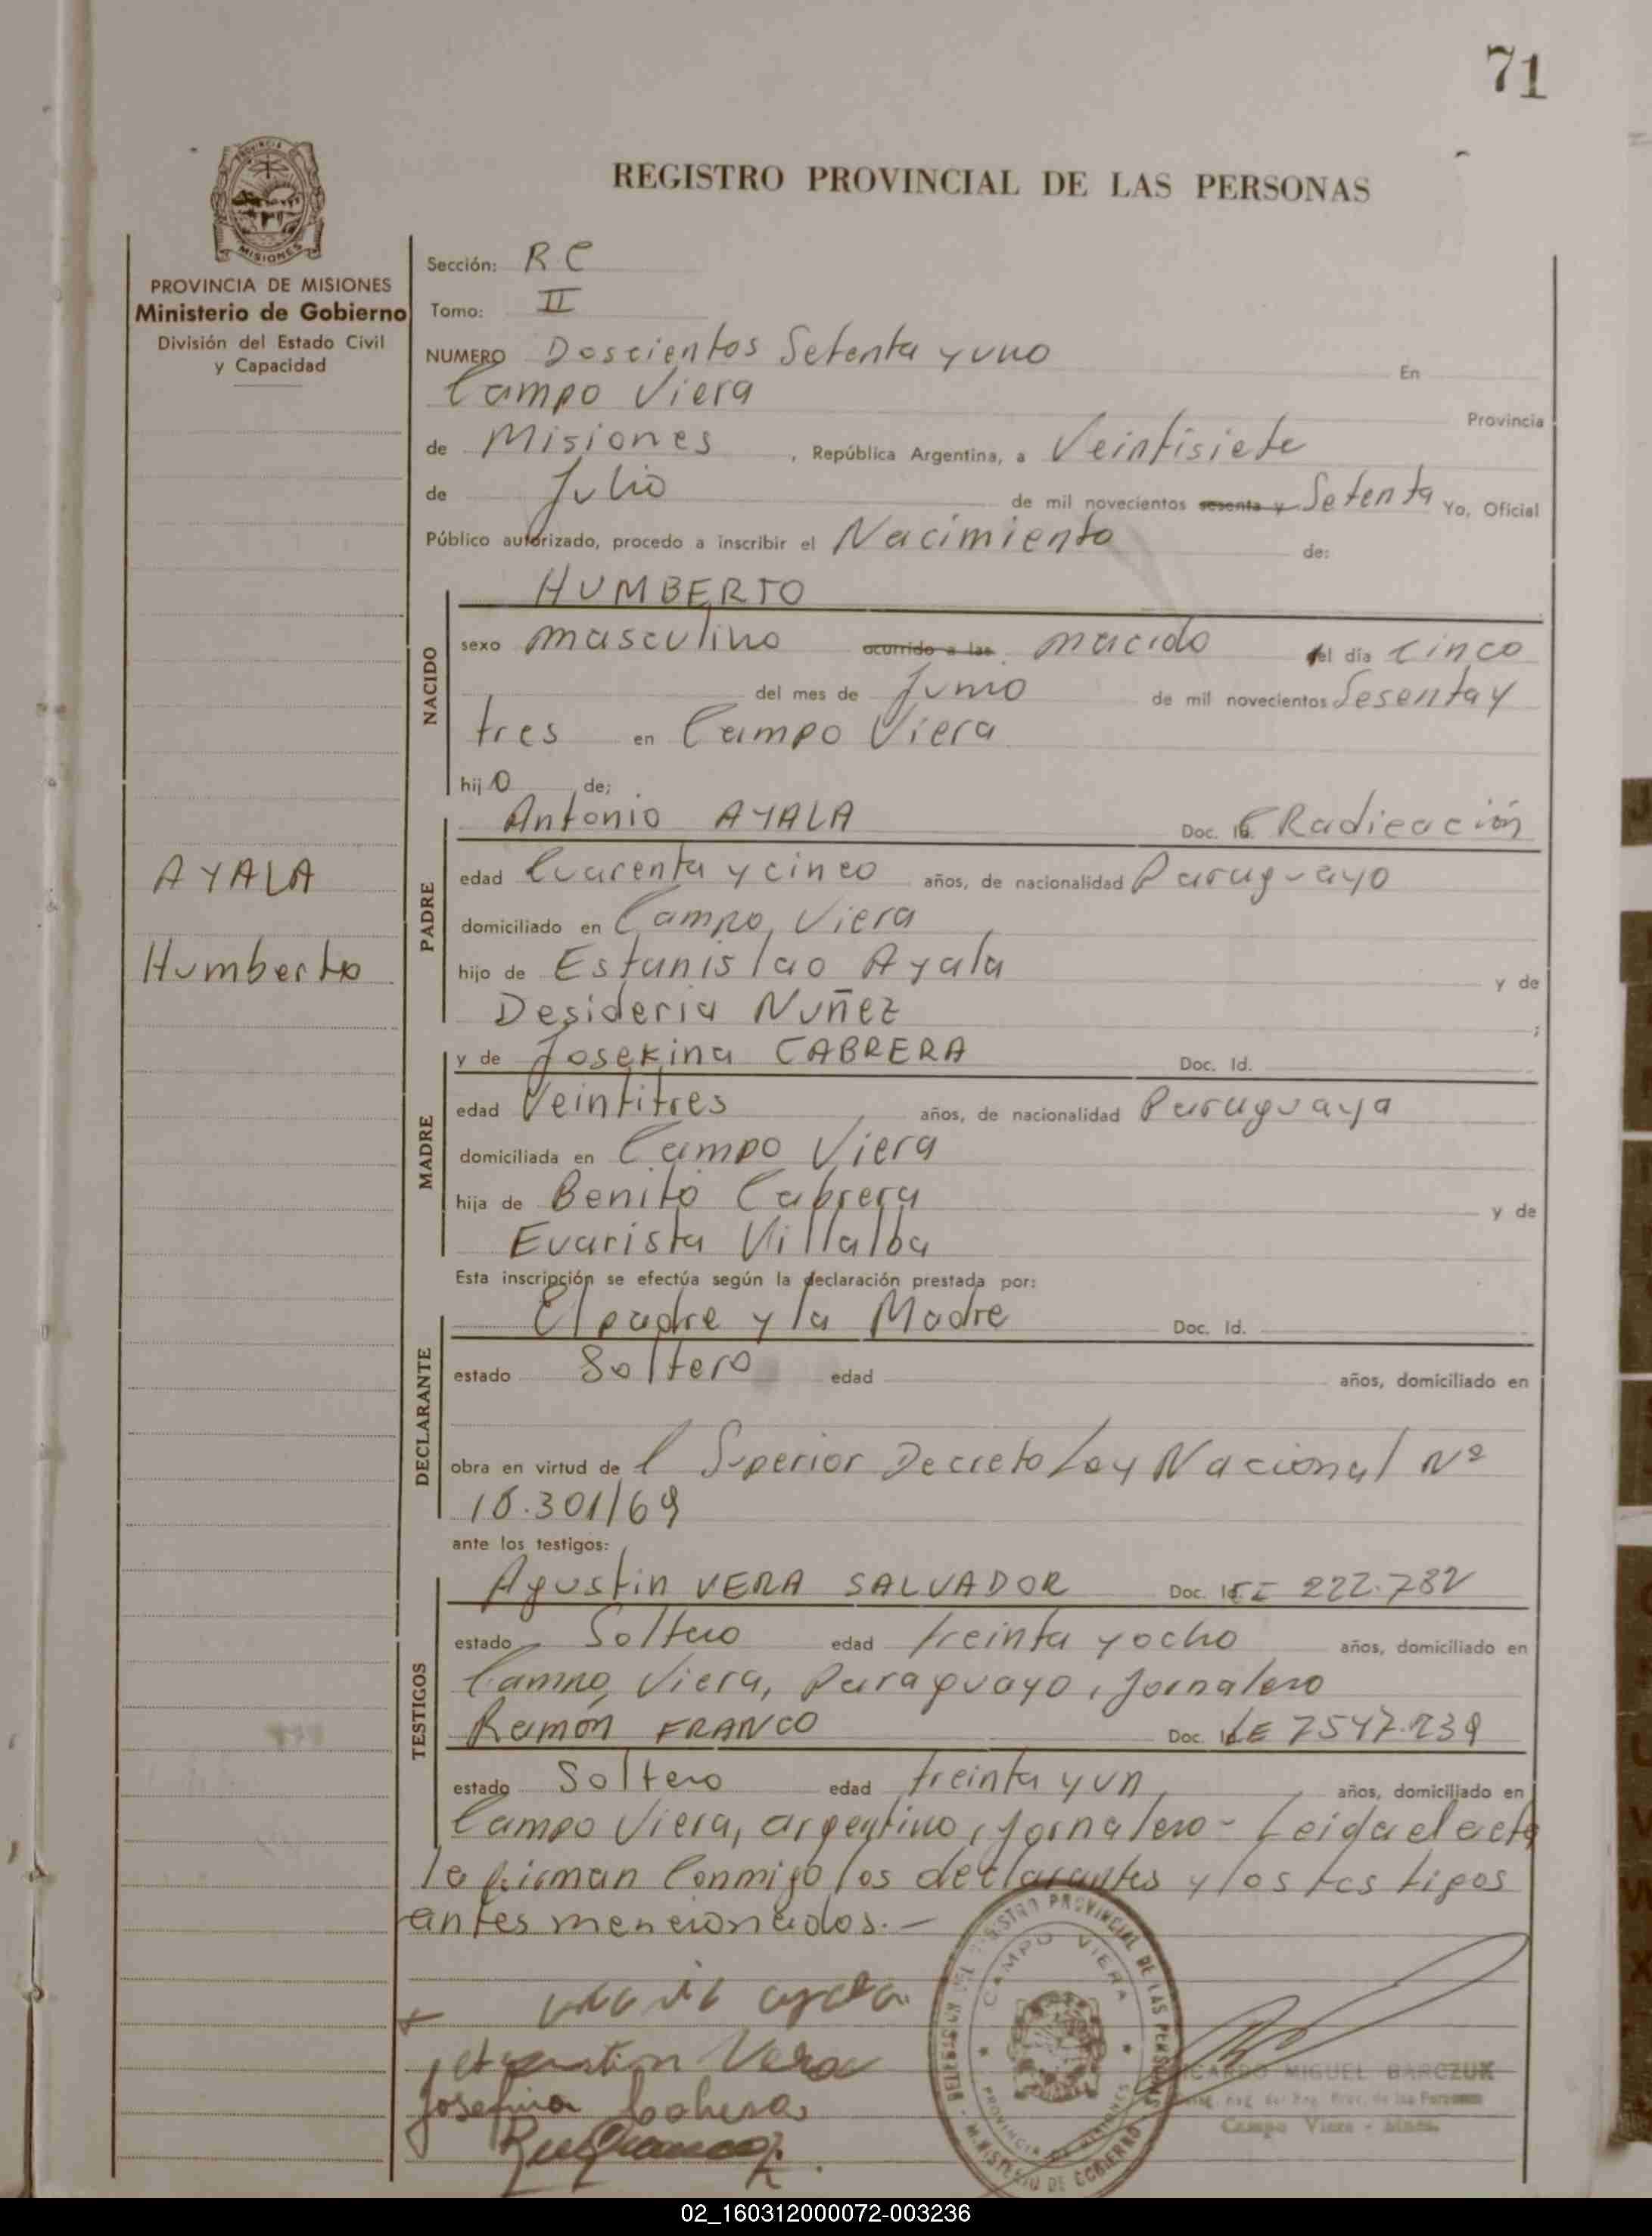 71
REGISTRO PROVINCIAL DE LAS PERSONAS
PROVINCIA MISIONES
PROVINCIA DE MISIONES
Ministerio de Gobierno
División del Estado Civil
y Capacidad
Sección: R C
Tomo: II
NUMERO Doscientos Setenta y uno En
Campo Viera Provincia
de Misiones, República Argentina, a Veintisiete
de Julio de mil novecientos sesenta y Setenta Yo, Oficial
Público autorizado, procedo a inscribir el Nacimiento de:
HUMBERTO
NACIDO
sexo masculino ocurrido a las nacido el día cinco
del mes de Junio de mil novecientos Sesenta y
tres en Campo Viera
hijo de;
Antonio AYALA Doc. Id. C Radicación
AYALA
Humberto
PADRE
edad Cuarenta y cinco años, de nacionalidad Paraguayo
domiciliado en Campo Viera
hijo de Estanislao Ayala y de
Desideria Nuñez ;
y de Josefina CABRERA Doc. Id.
MADRE
edad Veintitres años, de nacionalidad Paraguaya
domiciliada en Campo Viera
hija de Benito Cabrera y de
Evarista Villalba
Esta inscripción se efectúa según la declaración prestada por:
El padre y la Madre Doc. Id.
DECLARANTE
estado Soltero edad años, domiciliado en
obra en virtud de l Superior Decreto Ley Nacional Nº
18.301/69
ante los testigos:
Agustin VERA SALVADOR Doc. Id. CI 222.782
TESTIGOS
estado Soltero edad treinta y ocho años, domiciliado en
Campo Viera, Paraguayo, Jornalero
Ramón FRANCO Doc. LE 7547.239
estado Soltero edad treinta y un años, domiciliado en
Campo Viera, argentino, Jornalero - Leida el acta
la firman Conmigo los declarantes y los testigos
antes mencionados. -
ayala
Vera
Josefina Cabrera
Franco
CAMPO VIERA
PROVINCIA DE MISIONES
REGISTRO PROVINCIAL DE LAS PERSONAS
MINISTERIO DE GOBIERNO
MIGUEL BARCZUK
Campo Viera - Mnes.
02_160312000072-003236